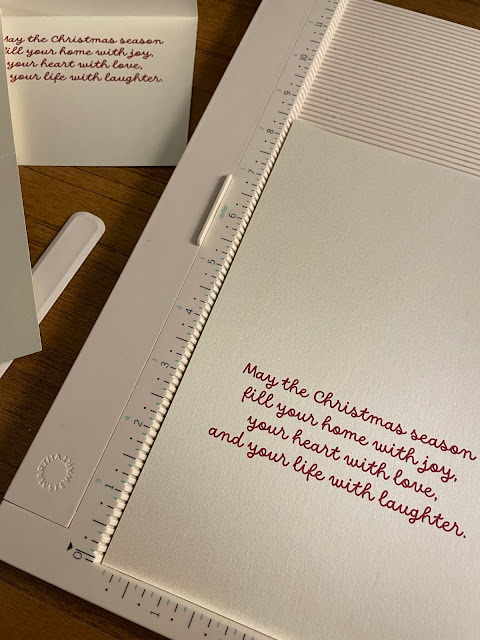 May the Christmas season
fill your home with joy,
your heart with love,
your life with laughter.
11
10
9
8
7
6
5
4
3
2
0
1
May the Christmas season
fill your home with joy,
your heart with love,
and your life with laughter.